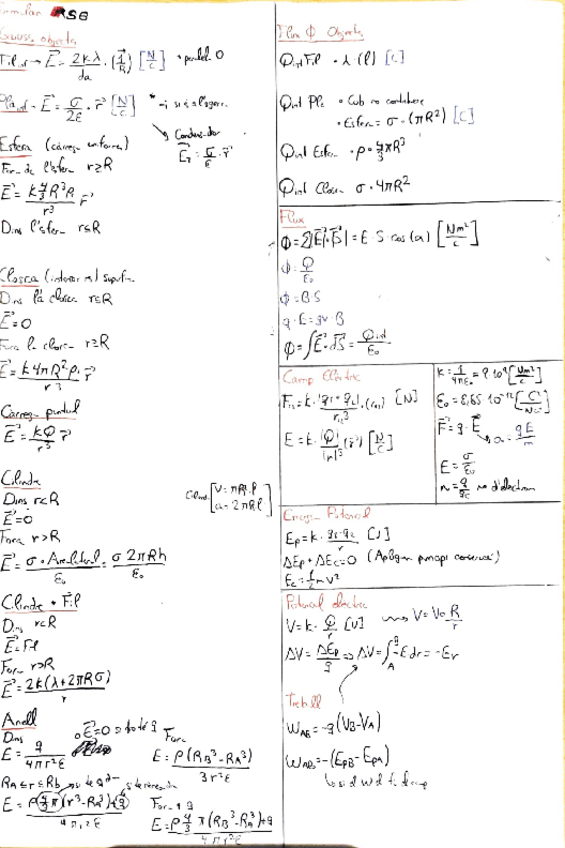 Formular RSG
Gauss objects
Fil inf → E⃗ = 2kλ/da · (1/R) [N/C] * paral. 0
Pla inf - E⃗ = σ/2ε · r⃗ [N/C]
Conductor
E⃗ = σ/ε · r⃗
Esfera (càrrega uniforme)
Fora de l'esfera r≥R
E⃗ = k 4/3 R³π/r³ r⃗
Dins l'esfera r≤R
Closca (interior no) superfície
Dins la closca r≤R
E⃗=0
Fora la closca r≥R
E⃗ = k4πR²ρ/r³ · r⃗
Càrrega puntual
E⃗ = kQ/r³ r⃗
Cilindre
Dins r<R
E⃗=0
Fora r>R
E⃗ = σ · Area lateral/ε₀ = σ 2πRh/ε₀
Cilind. [V = πR²·l
a = 2πRl]
Cilindre + Fil
Dins r<R
E⃗=Fil
Fora r>R
E⃗ = 2k(λ+2πRσ)/r
Anell
Dins
E = q/4πr²ε
Fora
E = ρ(R_B³-R_A³)/3r²ε
R_A≤r≤R_b
E = ρ 4/3 π(r³-R_A³)+q/4πr²ε
Fora + q
E = ρ 4/3 π(R_B³-R_A³)+q/4πr²ε
Flux Φ Objects
Qint Fil · λ·(l) [C]
Qint Pla · Cub no
· Esfera = σ·(πR²) [C]
Qint Esfera · ρ·4/3πR³
Qint Closca σ·4πR²
Flux
Φ = Σ|E⃗|·|S⃗| = E·S·cos(α) [Nm²/C]
Φ = Q/ε₀
Φ = B·S
q·E = qv·B
Φ = ∫E⃗·dS⃗ = Qint/ε₀
Camp Elèctric
F₁₂ = k·|q₁·q₂|/r₁₂³ · (r₁₂) [N]
E = k·|Q|/|r|³ (r⃗) [N/C]
k = 1/4πε₀ = 9·10⁹ [Nm²/C]
ε₀ = 8,85·10⁻¹² [C²/Nm²]
F⃗ = q·E⃗
a = qE/m
E = σ/ε₀
n = q/qe no d'electrons
Energia Potencial
Ep = k·q₁·q₂/r [J]
ΔEp+ΔEc=0 (Apliquem principi conservació)
Ec = ½mv²
Potencial elèctric
V = k·Q/r [V] → V = V₀ R/r
ΔV = ΔEp/q ⇒ ΔV = ∫ₐᴮ -E dr = -Er
Treball
W_AB = -q(V_B-V_A)
W_AB = -(Ep_B-Ep_A)